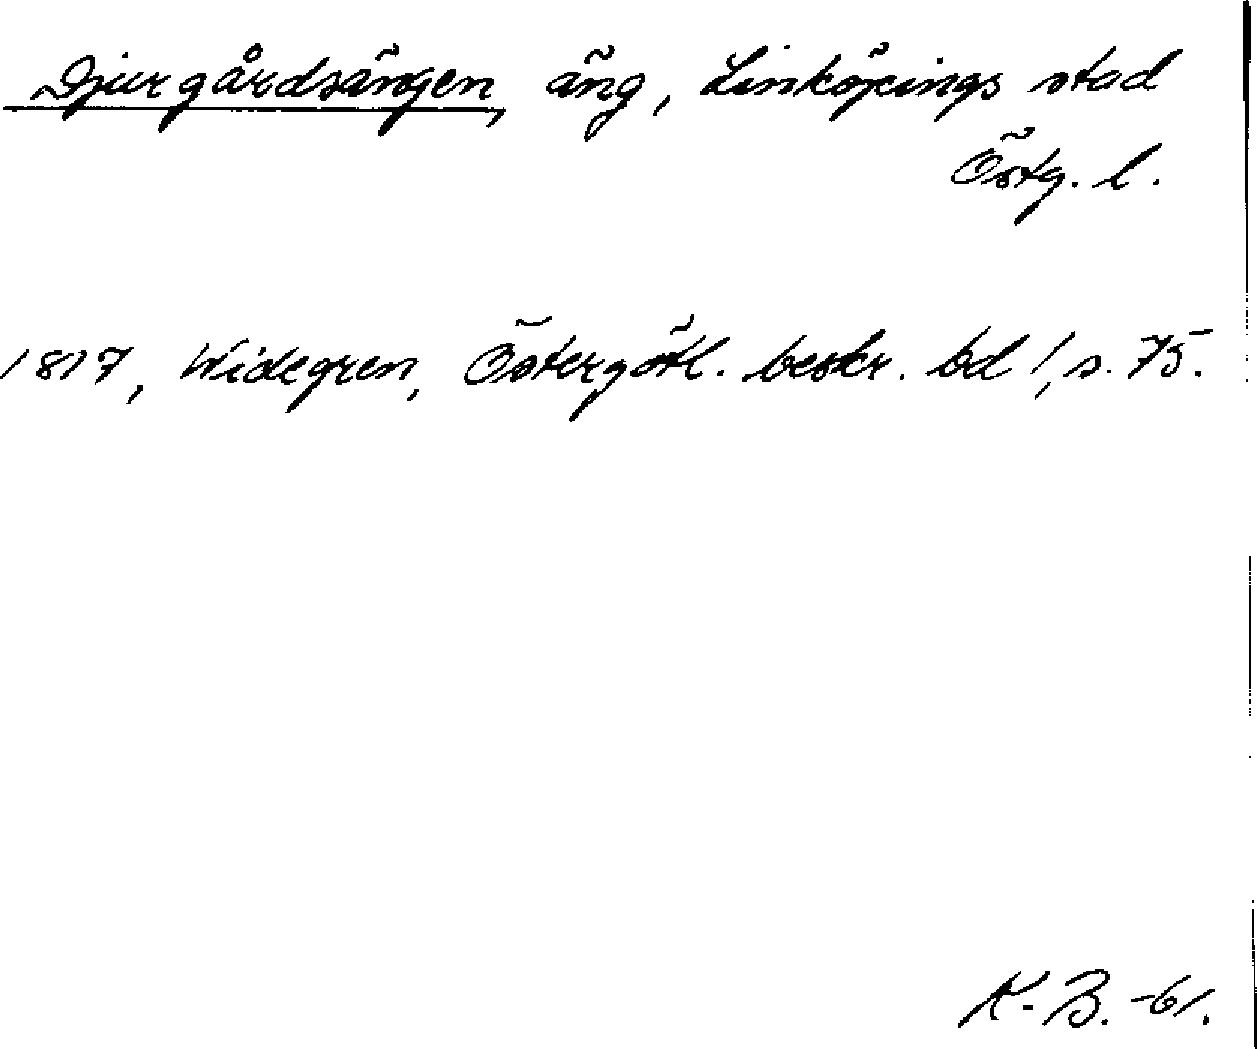 Djurgårdsängen, äng, Linköpings stad
Östg. l.
1817, Widegren, Östergötl. beskr. bd 1, s. 75.
K.B. -61.